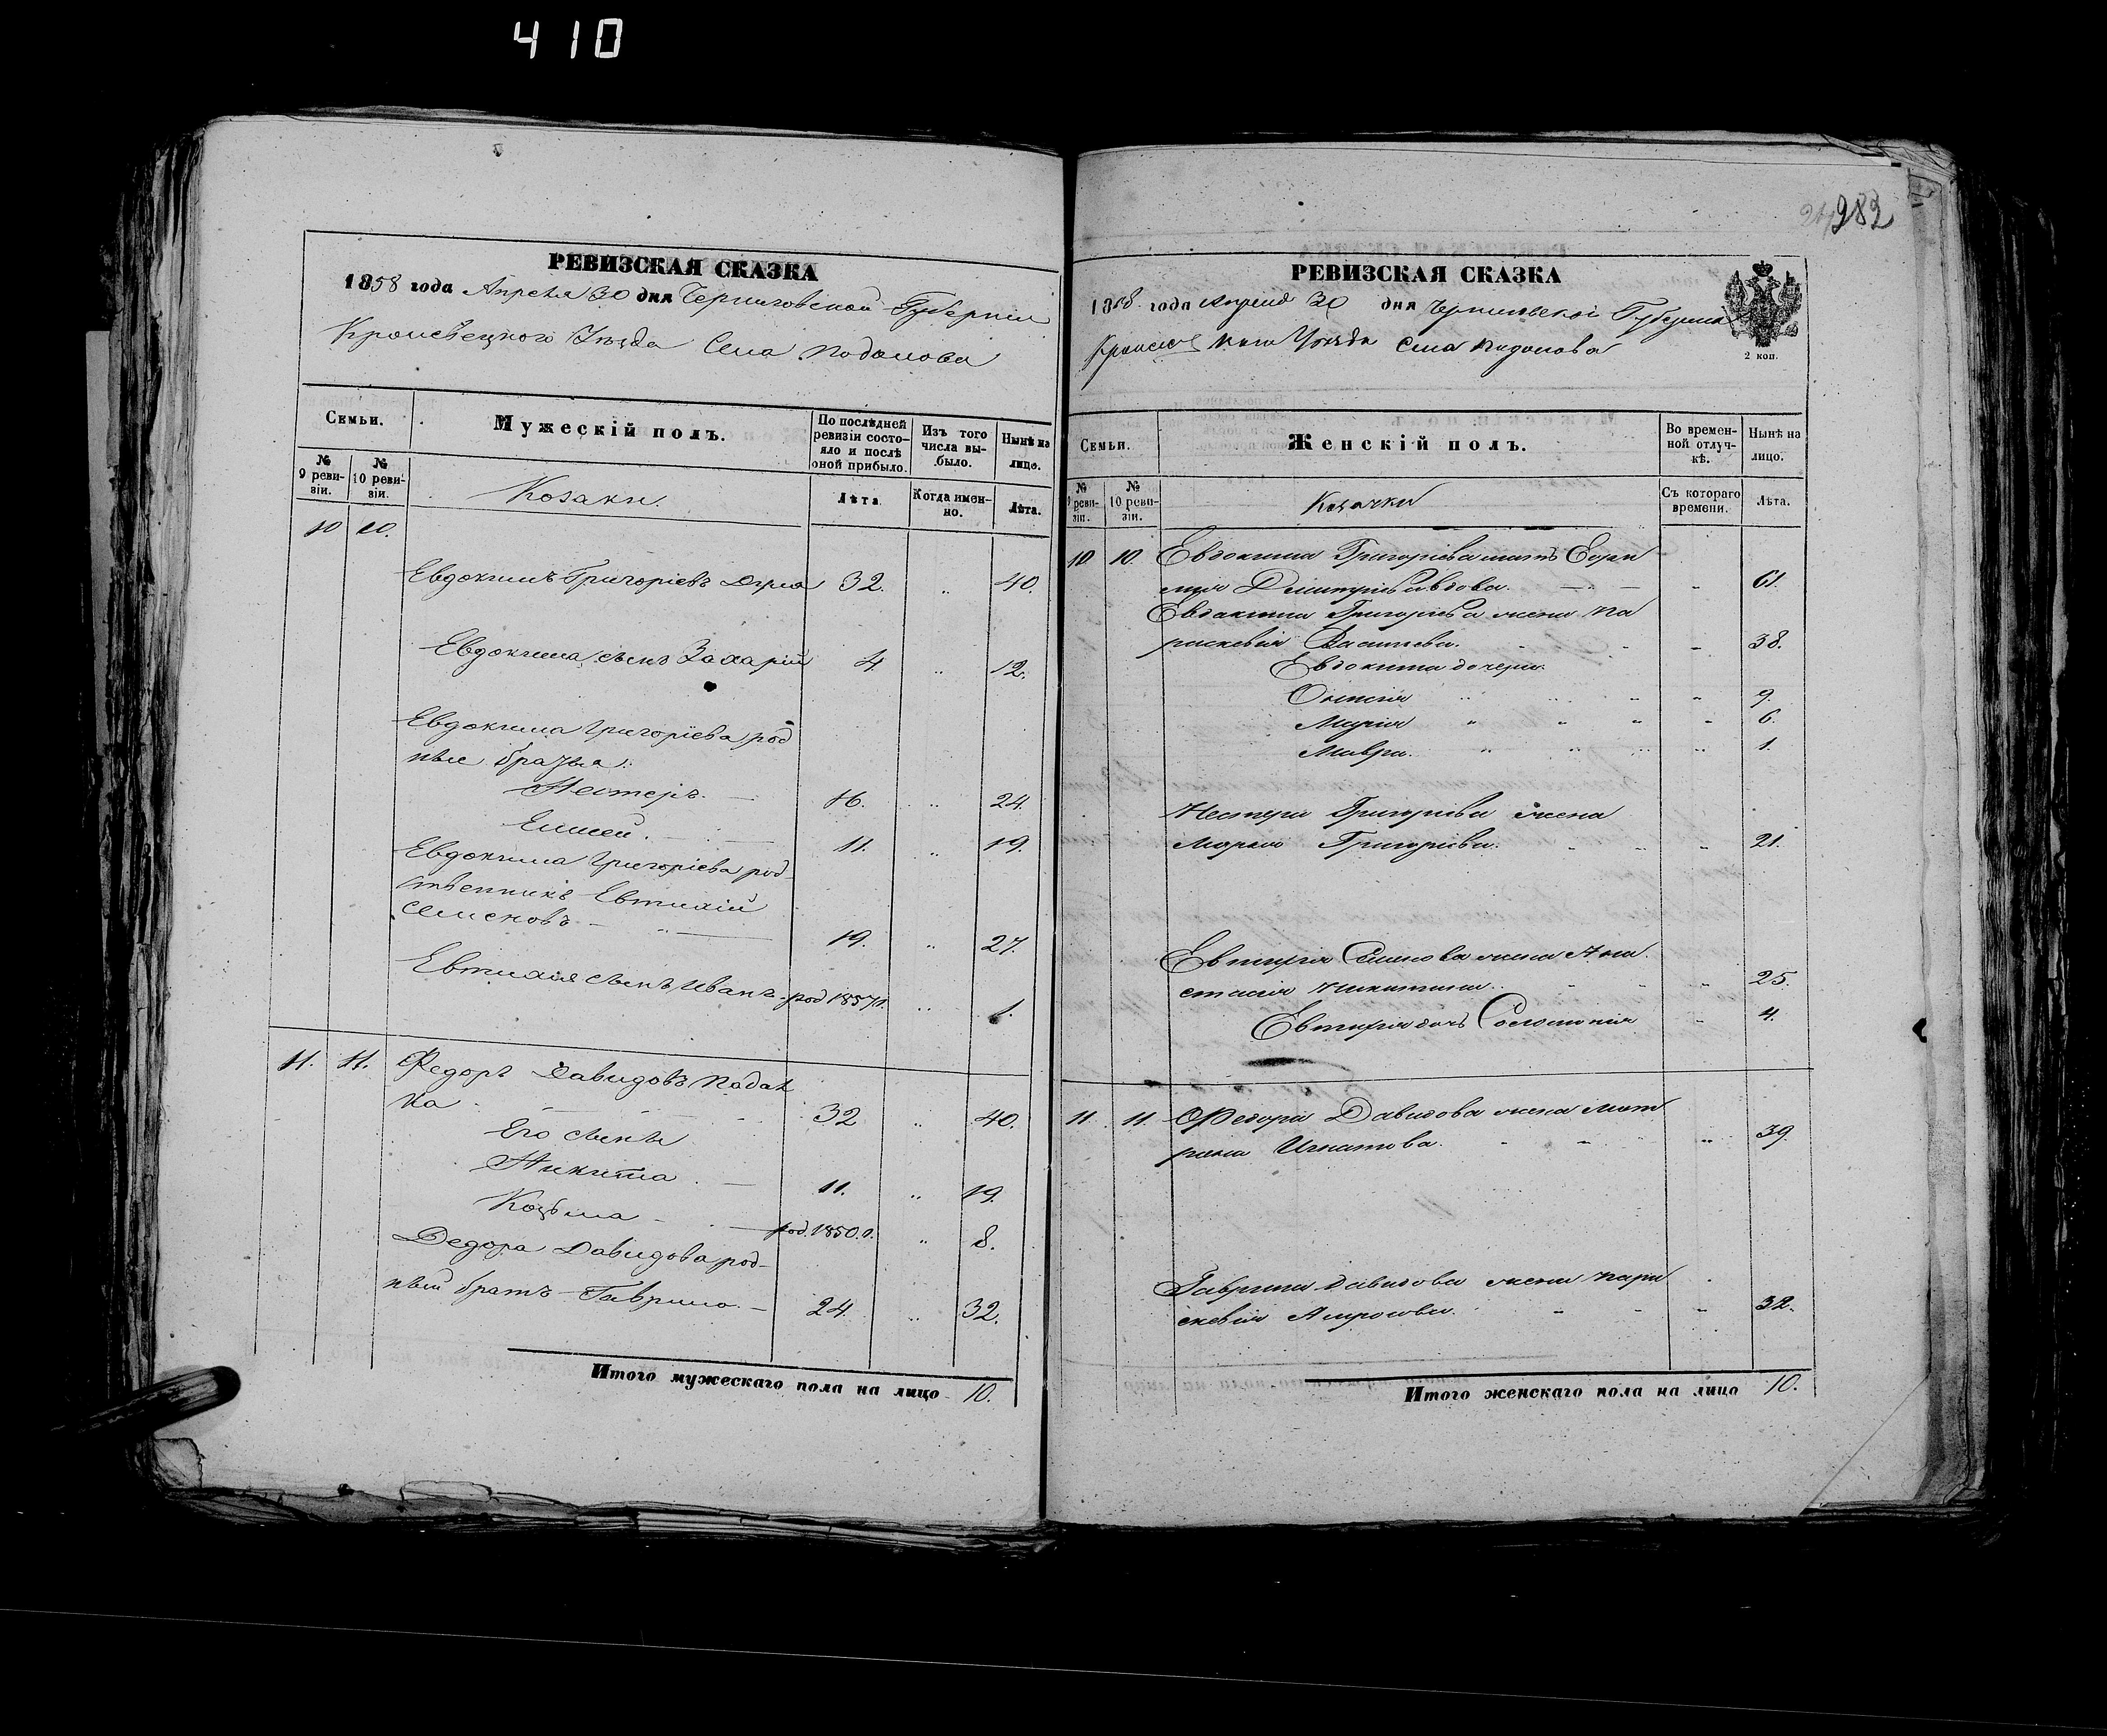 410
РЕВИЗСКАЯ СКАЗКА
1858 года Апреля 30 дня Черниговской Губернии
Кролевецкого Уезда Села Подолова
Семьи.
Мужескій полъ.
По послѣдней ревизіи состояло и послѣ оной прибыло.
Изъ того числа выбыло.
Нынѣ на лицо.
№ 9 ревизіи.
№ 10 ревизіи.
Козаки.
Лѣта.
Когда именно.
Лѣта.
10 10.
Евдокимъ Григоріевъ 32. „ 40.
Евдокима сынъ Захарій 4. „ 12.
Евдокима Григоріева род
ные братья:
Нестеръ. — 16. „ 24.
Елисей. — 11. „ 19.
Евдокима Григоріева род-
ственникъ Евтихій
Семеновъ — 19. „ 27.
Евтихія сынъ Иванъ род 1857 г. „ 1.
11. 11. Федоръ Давидовъ
ка — 32 „ 40.
Его сыны
Никита. — 11. „ 19.
Козьма — род. 1850. г. „ 8.
Федора Давидова род-
ный братъ — Гаврило. — 24. „ 32.
Итого мужескаго пола на лицо 10.
282
РЕВИЗСКАЯ СКАЗКА
1858 года Апреля 30 дня Черниговской Губернии
Кролевецкаго Уезда Села Подолова
2 коп.
Семьи.
Женскій полъ.
Во временной отлучкѣ.
Нынѣ на лицо.
№ 9 ревизіи.
№ 10 ревизіи.
Козачки
Съ котораго времени.
Лѣта.
10 10. Евдокима Григоріева мать
Дмитріева вдова. — „ 61.
Евдокима Григоріева жена Па
раскевія Васильева. „ 38.
Евдокима дочери:
„ 9.
Марія „ 6.
Мавра. „ 1.
Нестера Григоріева жена
Марія Григоріева. „ 21.
Евтихія Семенова жена Ана
стасія Никитина. „ 25.
Евтихія дочь Соломонія „ 4.
11. 11. Федора Давидова жена Мот
рона Игнатова. „ 39
Гаврила Давидова жена Пара
скевія „ 32.
Итого женскаго пола на лицо 10.